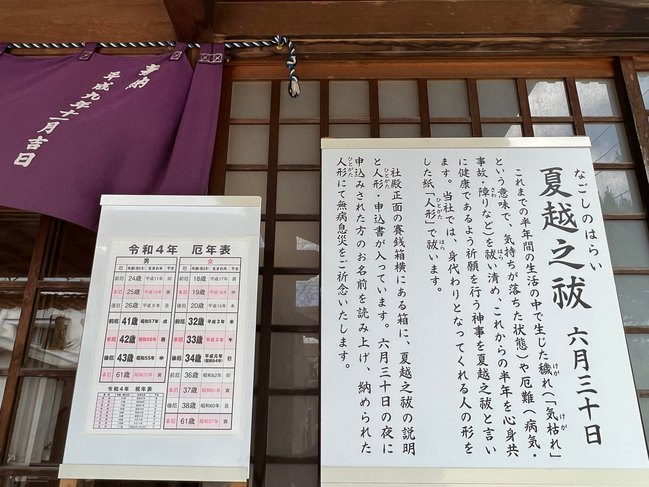 奉納
平成九年十一月吉日
令和4年 厄年表
男
前厄 24歳 平成11年 卯
本厄 25歳 平成10年 寅
後厄 26歳 平成9年 丑
前厄 41歳 昭和57年 戌
本厄 42歳 昭和56年 酉
後厄 43歳 昭和55年 申
本厄 61歳 昭和37年 寅
女
前厄 18歳 平成17年 酉
本厄 19歳 平成16年 申
後厄 20歳 平成15年 未
前厄 32歳 平成3年 未
本厄 33歳 平成2年 午
後厄 34歳 平成元年(昭和64年) 巳
前厄 36歳 昭和62年 卯
本厄 37歳 昭和61年 寅
後厄 38歳 昭和60年 丑
本厄 61歳 昭和37年 寅
令和4年 祝年表
なごしのはらい
夏越之祓 六月三十日
これまでの半年間の生活の中で生じた穢れ(「気枯れ」
という意味で、気持ちが落ちた状態)や厄難(病気・
事故、障りなど)を祓い清め、これからの半年を心身共
に健康であるよう祈願を行う神事を夏越之祓と言い
ます。当社では、身代わりとなってくれる人の形を
した紙「人形」で祓います。
社殿正面の賽銭箱横にある箱に、夏越之祓の説明
と人形、申込書が入っています。六月三十日の夜に
申込みされた方のお名前を読み上げ、納められた
人形にて無病息災をご祈念いたします。